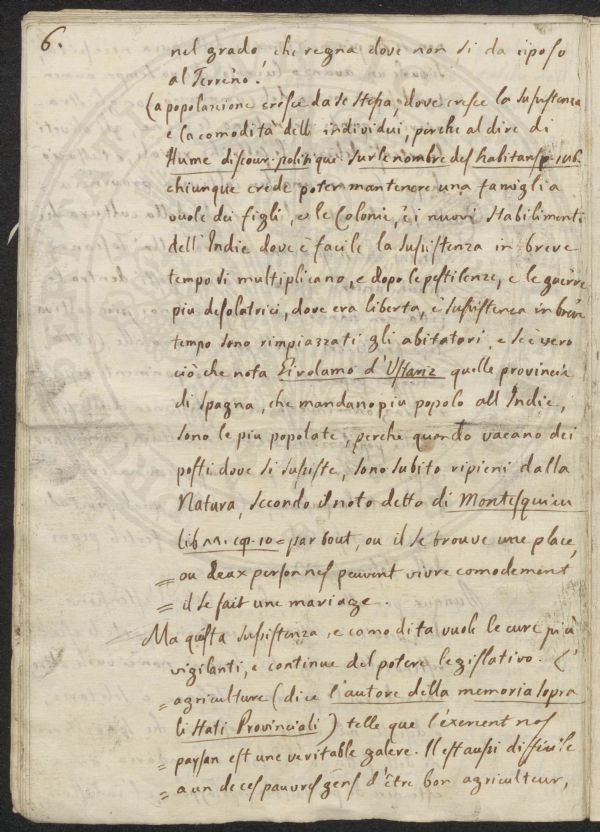 6.
nel grado che regna dove non si da riposo
al Terreno.
La popolazione cresce da se stessa, dove cresce la sussistenza
e la comodità delli individui, perche al dire di
Hume discour. politique sur le nombre des habitans p. 106.
chiunque crede poter mantenere una famiglia
vuole dei figli, e le Colonie, e i nuovi stabilimenti
dell'Indie dove è facile la sussistenza in breve
tempo si multiplicano, e dopo le pestilenze, e le guerre
piu desolatrici, dove era libertà, e sussistenza in breve
tempo sono rimpiazzati gli abitatori, e se è vero
ciò che nota Girolamo d'Ustariz quelle provincie
di Spagna, che mandano piu popolo all'Indie,
sono le piu popolate, perche quando vacano dei
posti dove si sussiste, sono subito ripieni dalla
Natura, secondo il noto detto di Montesquieu
lib. cap. 10 = par tout, ou il se trouve une place,
= ou deux personnes peuvent vivre comodement
= il se fait une mariage.
Ma questa sussistenza, e comodità vuole le cure più
vigilanti, e continue del potere legislativo. L'
= agriculture (dice l'autore della memoria sopra
li Stati Provinciali) telle que l'exercent nos
= paysan est une veritable galere. Il est aussi difficile
= a un de ces pauvres gens d'être bon agriculteur,